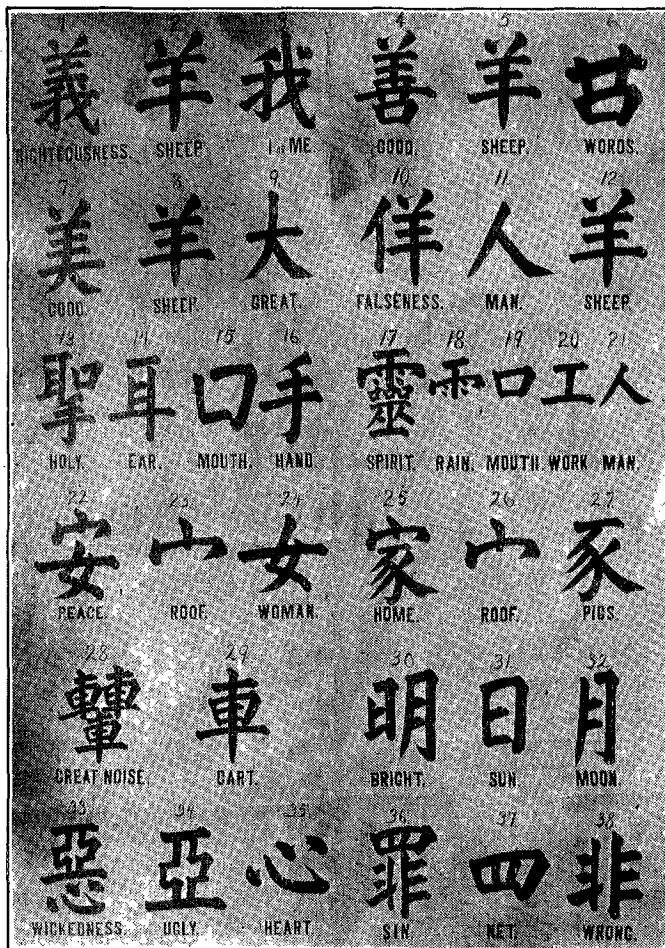 1 2 3 4 5 6
義 羊 我 善 羊 㕣
RIGHTEOUSNESS. SHEEP. I OR ME. GOOD. SHEEP. WORDS.
7 8 9 10 11 12
美 羊 大 佯 人 羊
GOOD. SHEEP. GREAT. FALSENESS. MAN. SHEEP.
13 14 15 16 17 18 19 20 21
聖 耳 口 手 靈 雨 口 工 人
HOLY. EAR. MOUTH. HAND. SPIRIT. RAIN. MOUTH. WORK MAN.
22 23 24 25 26 27
安 宀 女 家 宀 豕
PEACE. ROOF. WOMAN. HOME. ROOF. PIGS.
28 29 30 31 32
轟 車 明 日 月
GREAT NOISE. CART. BRIGHT. SUN. MOON.
33 34 35 36 37 38
惡 亞 心 罪 罒 非
WICKEDNESS. UGLY. HEART. SIN. NET. WRONG.